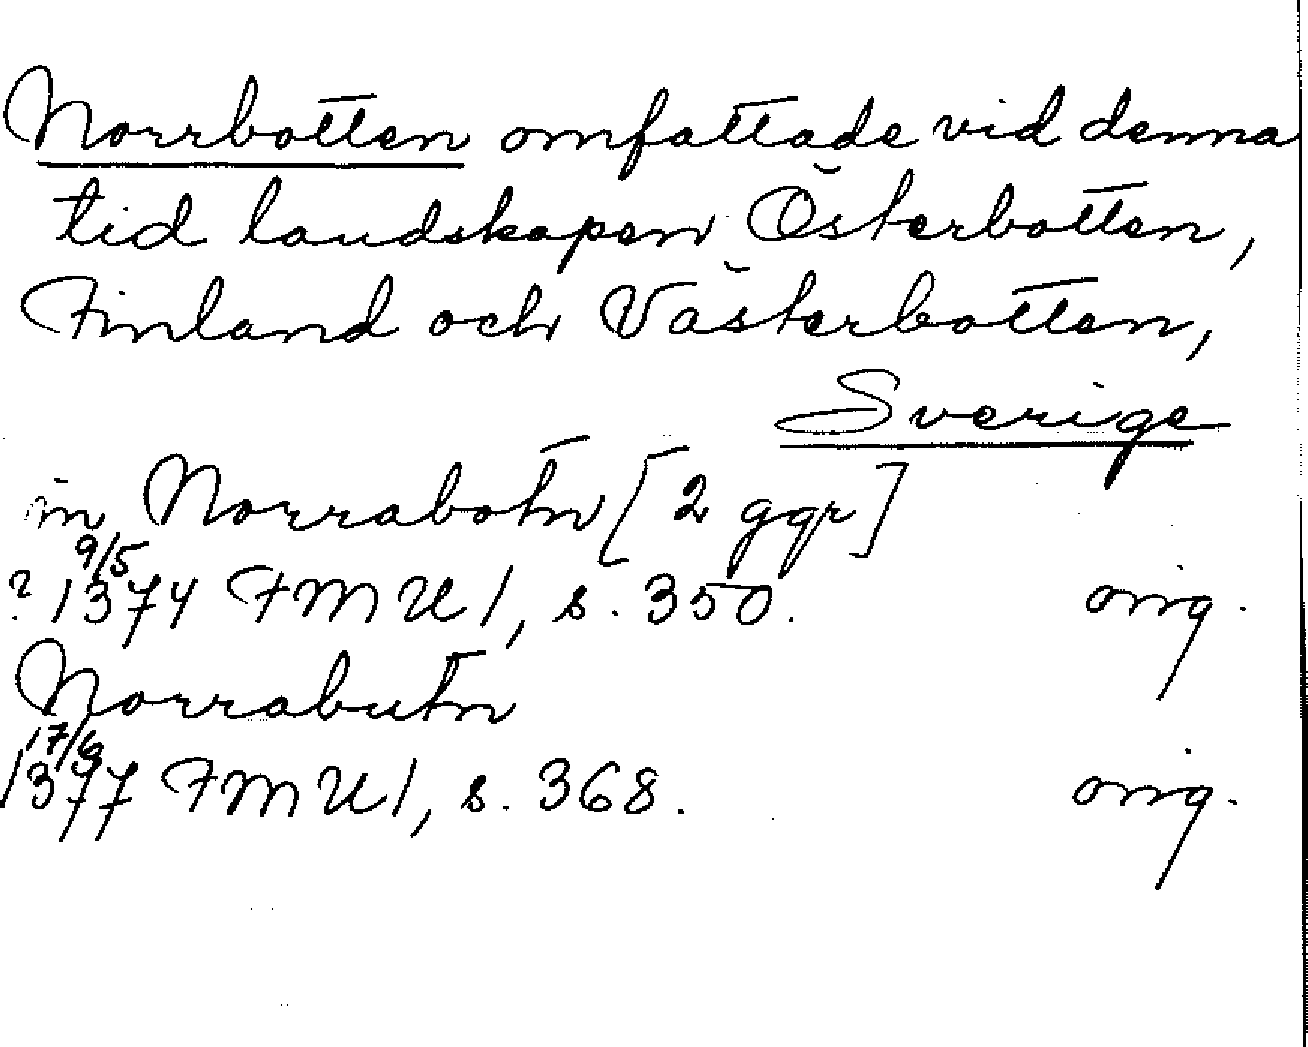 Norrbotten omfattade vid denna
tid landskapen Österbotten,
Finland och Västerbotten,
Sverige
in Norrabotn [2 ggr]
9/5
? 1374 FMU I, s. 350. orig.
Norrabutn
17/6
1377 FMU I, s. 368. orig.